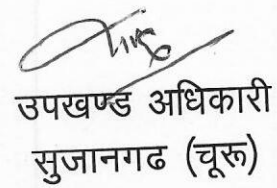 उपखण्ड अधिकारी
सुजानगढ (चूरू)